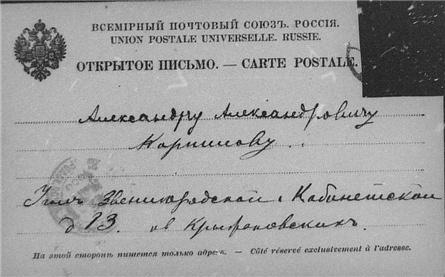 ВСЕМІРНЫЙ ПОЧТОВЫЙ СОЮЗЪ. РОССІЯ.
UNION POSTALE UNIVERSELLE. RUSSIE.
ОТКРЫТОЕ ПИСЬМО. — CARTE POSTALE.
Александру Александровичу
Корнилову.
Уголъ Звенигородской и Кабинетской
д 13. кв Крыжановскихъ.
На этой сторонѣ пишется только адресъ. — Côté réservé exclusivement à l'adresse.